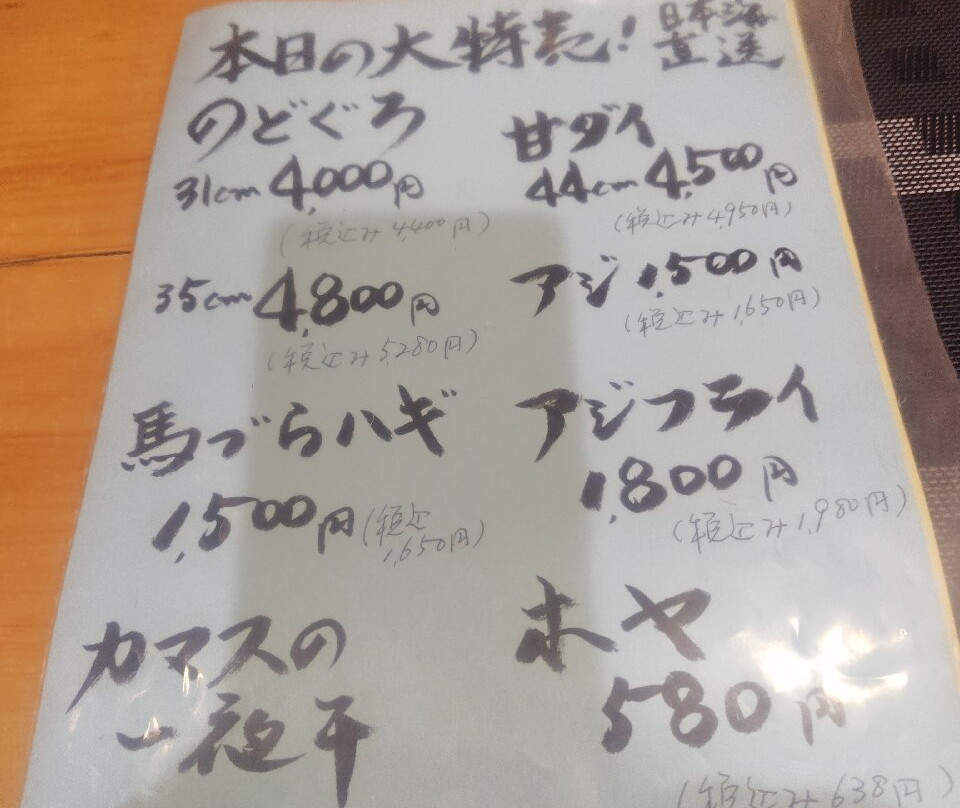 本日の大特売!
日本海
直送
のどぐろ
31cm 4,000円
(税込み4,400円)
35cm 4,800円
(税込み5,280円)
馬づらハギ
1,500円(税込
1,650円)
カマスの
一夜干
甘ダイ
44cm 4,500円
(税込み4,950円)
アジ 1,500円
(税込み1,650円)
アジフライ
1,800円
(税込み1,980円)
ホヤ
580円
(税込み638円)